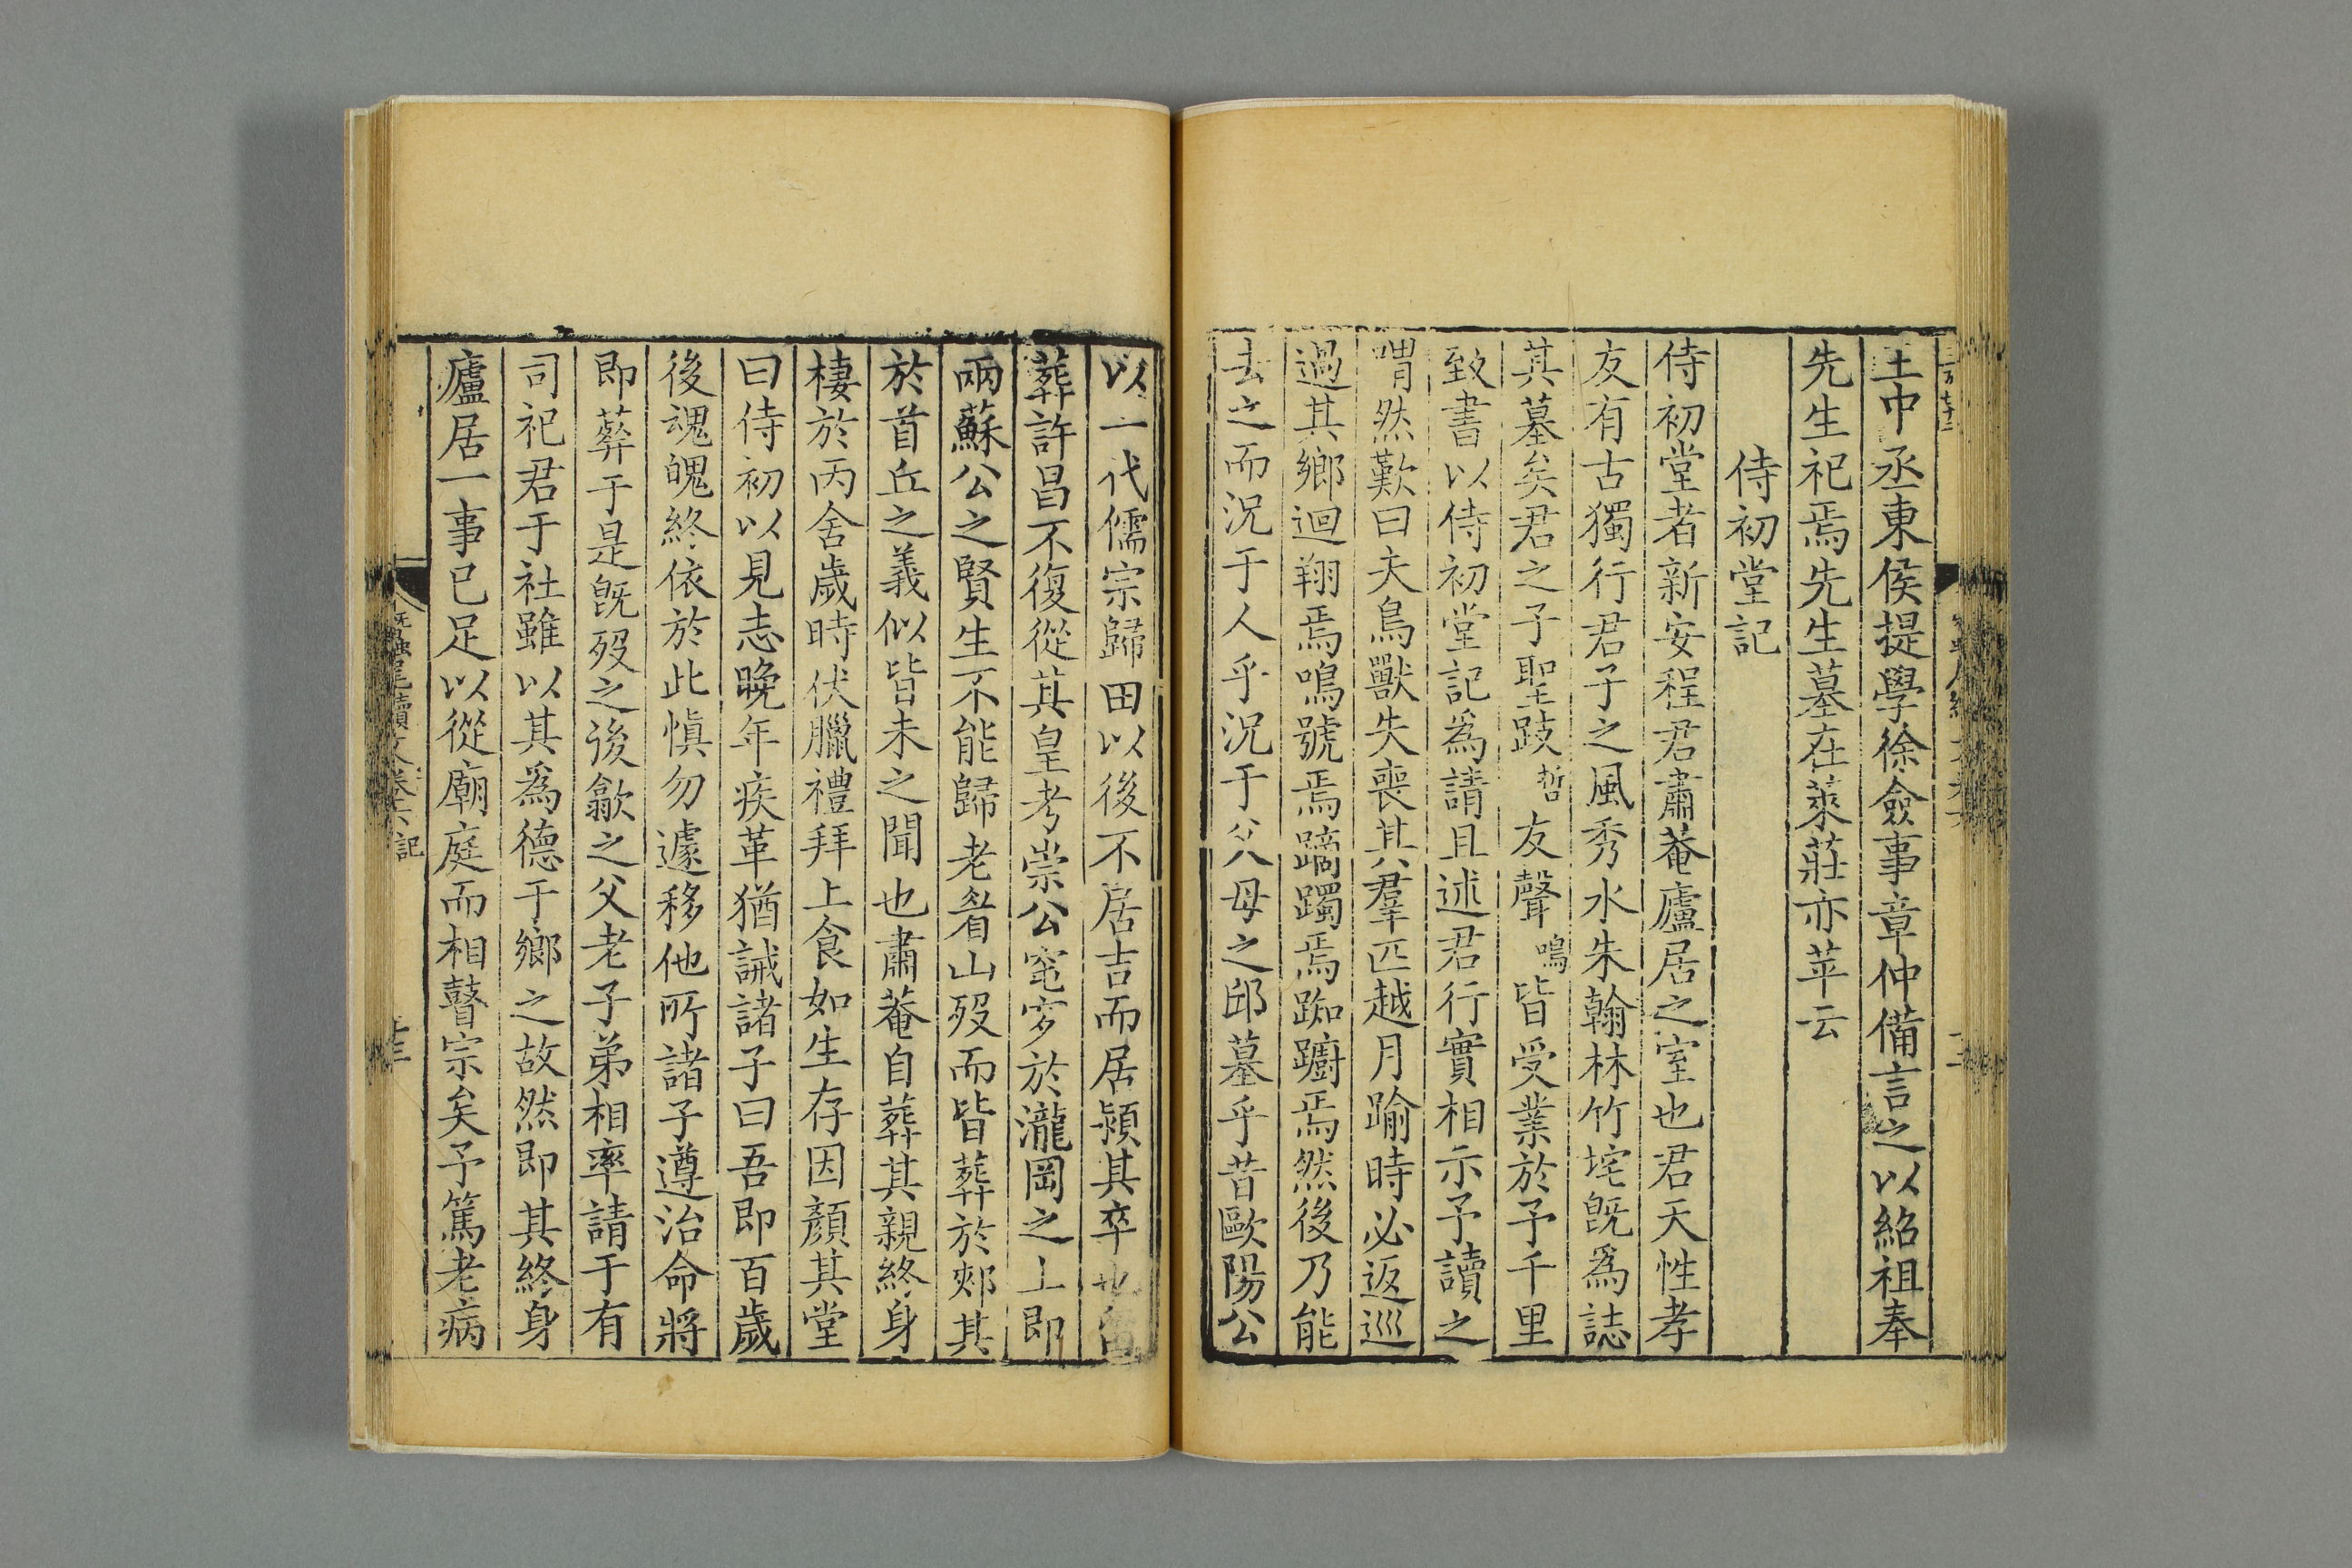 王中丞東侯提學徐僉事章仲備言之以紹祖奉
先生祀焉先生墓在萊莊亦苹云
侍初堂記
侍初堂者新安程君肅菴廬居之室也君天性孝
友有古獨行君子之風秀水朱翰林竹垞旣爲誌
其墓矣君之子聖跂哲友聲鳴皆受業於予千里
致書以侍初堂記爲請且述君行實相示予讀之
喟然歎曰夫鳥獸失喪其羣匹越月踰時必返巡
過其鄉迴翔焉鳴號焉蹢躅焉踟躕焉然後乃能
去之而況于人乎況于父母之邱墓乎昔歐陽公
以一代儒宗歸田以後不居吉而居潁其卒也
葬許昌不復從其皇考崇公窀穸於瀧岡之上即
兩蘇公之賢生不能歸老眷山歿而皆葬於郟其
於首丘之義似皆未之聞也肅菴自葬其親終身
棲於丙舍歲時伏臘禮拜上食如生存因顏其堂
曰侍初以見志晚年疾革猶誡諸子曰吾即百歲
後魂魄終依於此慎勿遽移他所諸子遵治命將
即葬于是旣歿之後歙之父老子弟相率請于有
司祀君于社雖以其爲德于鄉之故然即其終身
廬居一事已足以從廟庭而相瞽宗矣予篤老病
蠶尾續文卷六 記